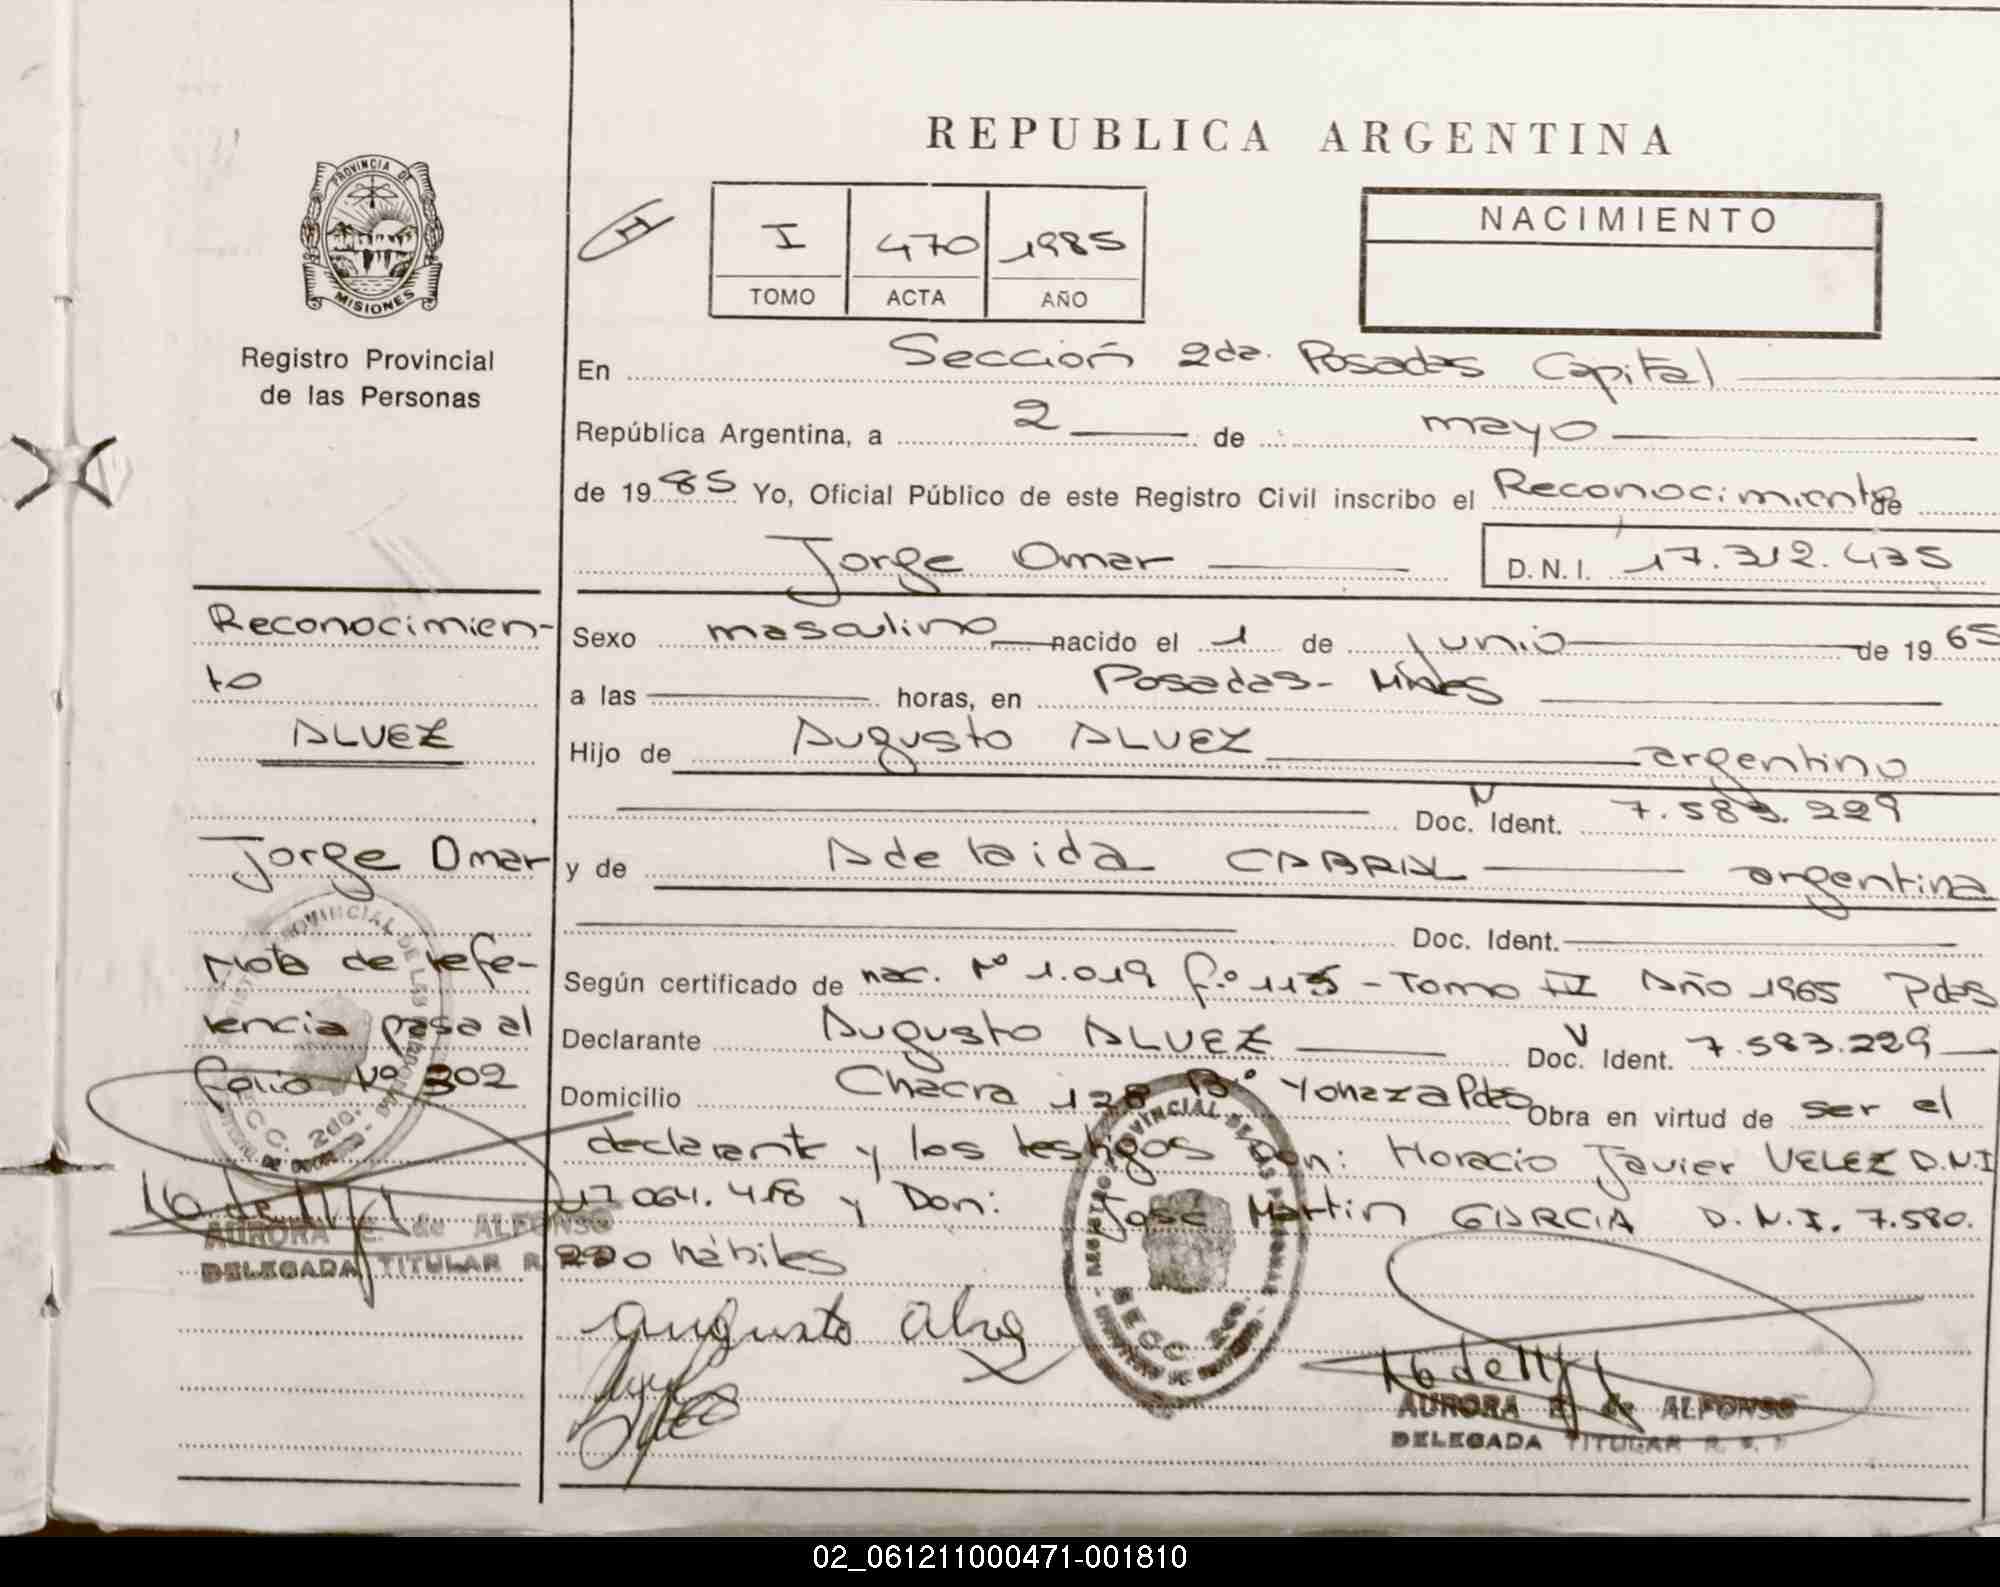 REPUBLICA ARGENTINA
PROVINCIA DE
MISIONES
Registro Provincial
de las Personas
H
I 470 1985
TOMO ACTA AÑO
NACIMIENTO
En Sección 2da. Posadas Capital
República Argentina, a 2 de mayo
de 1985 Yo, Oficial Público de este Registro Civil inscribo el Reconocimiento de
Jorge Omar D.N.I. 17.312.435
Sexo masculino nacido el 1 de junio de 1965
a las horas, en Posadas- Mnes
Hijo de Augusto ALVEZ argentino
Doc. Ident. 7.583.229
y de Adelaida CABRAL argentina
Doc. Ident.
Según certificado de nac. Nº 1.019 fº 115 - Tomo III Año 1965 Pdas
Declarante Augusto ALVEZ Doc. Ident. 7.583.229
Domicilio Chacra 128 Bº Yohazá Pdas Obra en virtud de ser el
declarante y los testigos Don: Horacio Javier VELEZ D.N.I
17.064.418 y Don: José Martin GARCIA D.N.I. 7.580.
220 hábiles
Augusto Alvez
REGISTRO PROVINCIAL DE LAS PERSONAS
SECC. 2da.
AURORA E. de ALFONSO
DELEGADA TITULAR R. P.
Reconocimien-
to
ALVEZ
Jorge Omar
Nota de refe-
rencia pasa al
folio Nº 302
REGISTRO PROVINCIAL DE LAS PERSONAS
SECC. 2da.
AURORA E. de ALFONSO
DELEGADA TITULAR R.
02_061211000471-001810